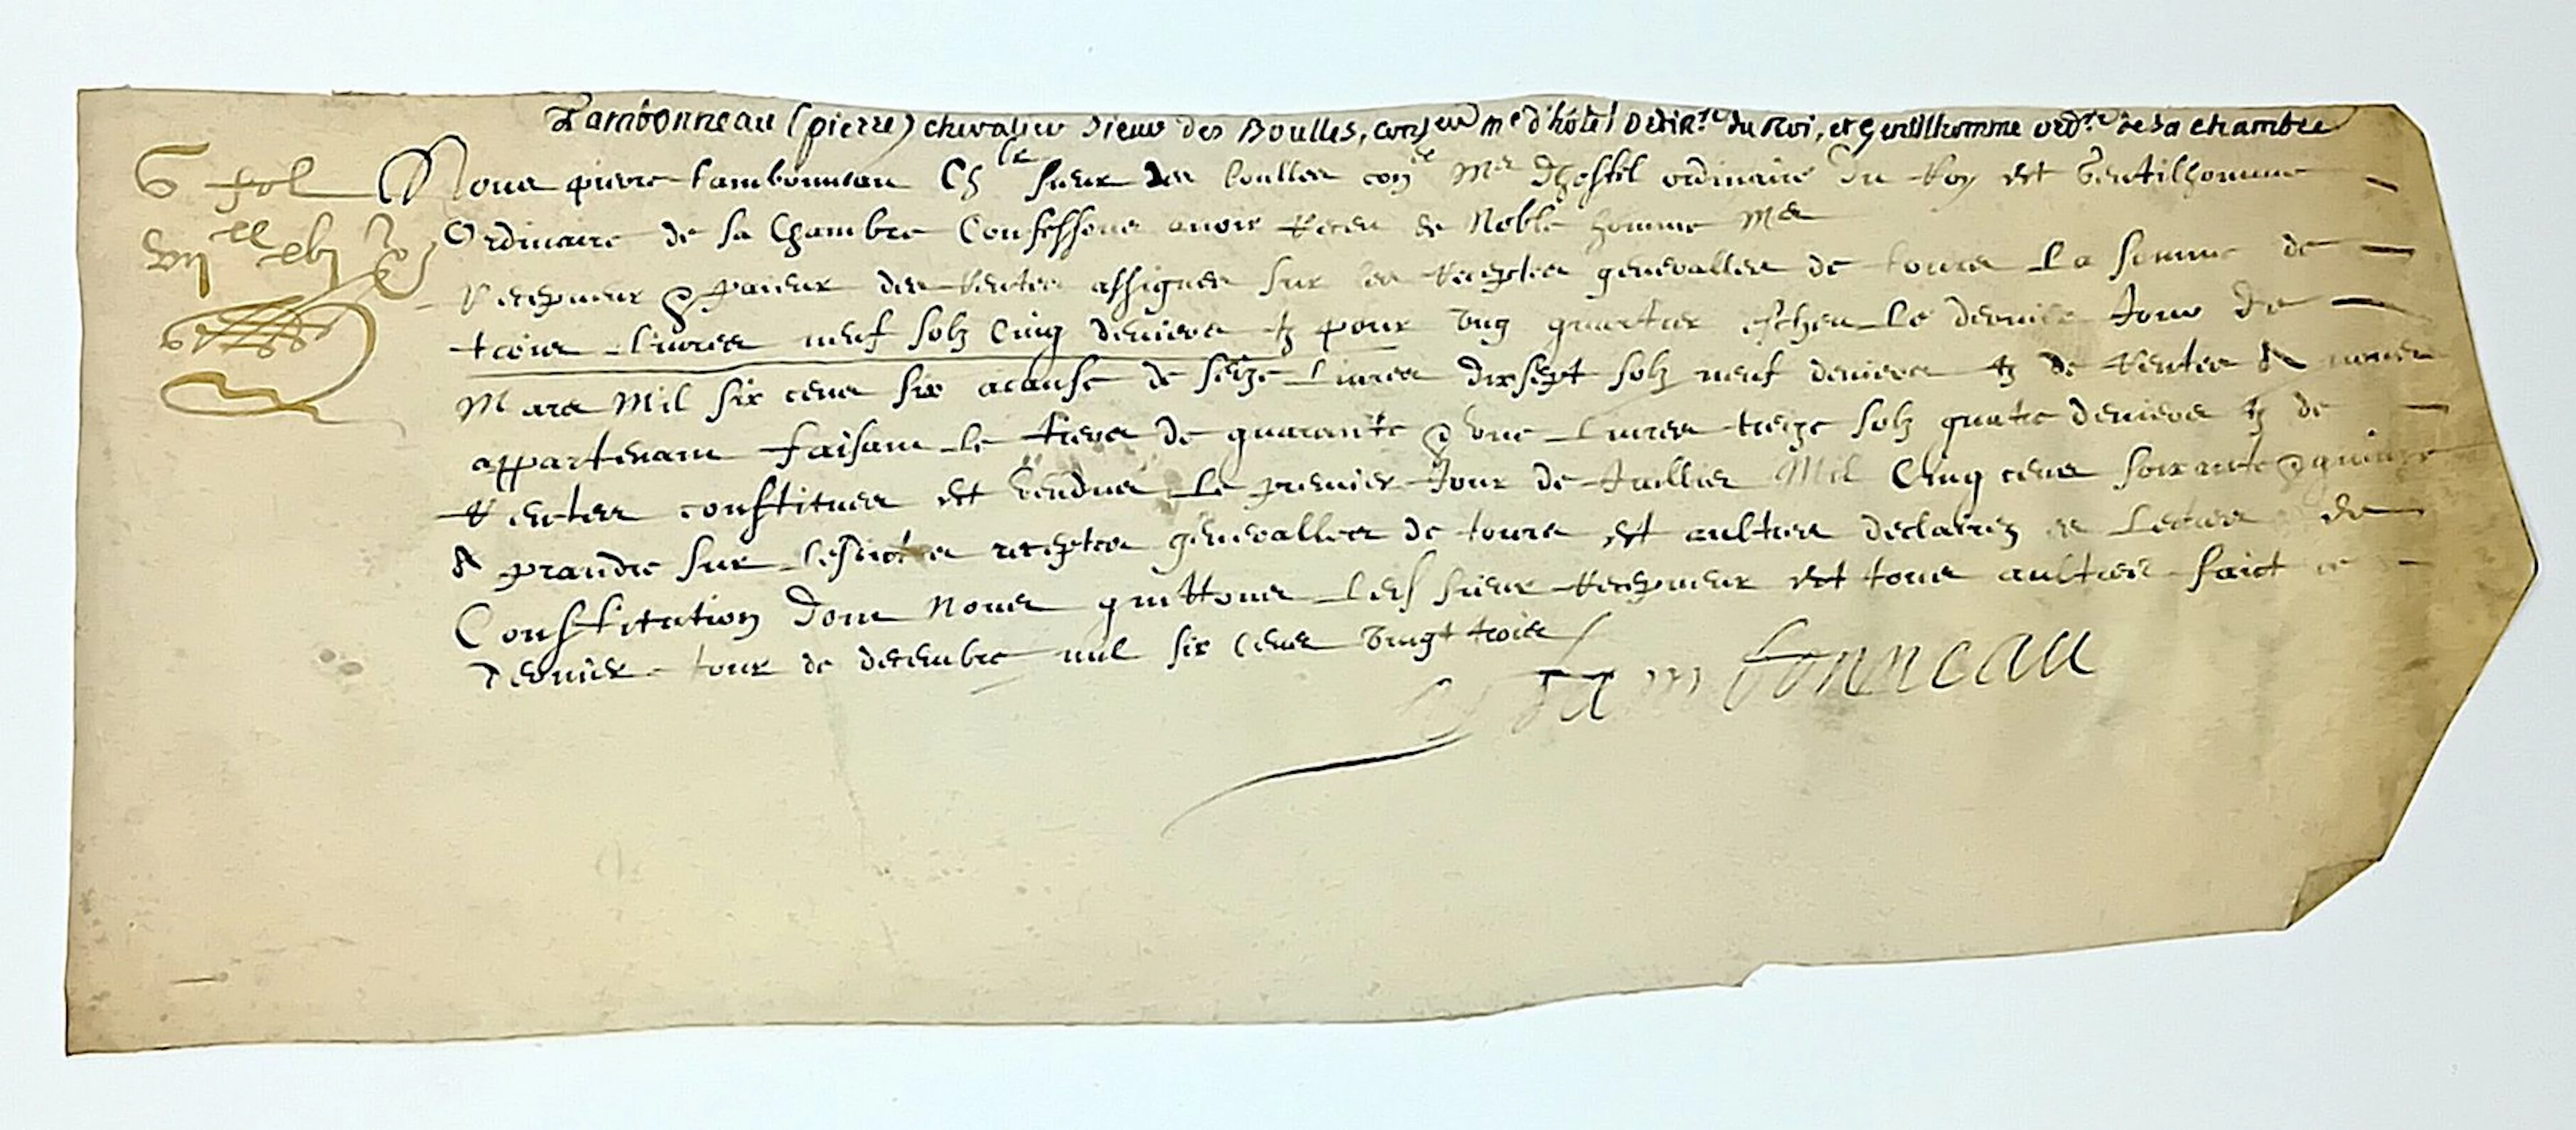 Tambonneau (pierre) chevalier sieur des Boulles, conser me d'hôtel ordin.re du Roi, et gentilhomme ord.re de sa chambre
Nous pierre tambonneau Ch.ler sieur des boulles con.er M.e dhostel ordinaire du Roy et Gentilhomme
Ordinaire de sa Chambre Confessons avoir Receu de Noble homme Me
Recepveur & paieur des Rentes assignes sur les Receptes generalles de tours La somme de
trois Livres neuf solz Cinq deniers tz pour ung quartier escheu Le dernier Jour de
Mars Mil six cens six acause de seize Livres dixsept solz neuf deniers tz de Rentes A nous
appartenans faisans Le tiers de quarante & une Livres treize solz quatre deniers tz de
Rentes constitues et vendues Le premier Jour de Juillet Mil Cinq cens soixante & quinze
A prandre sur lesdictes receptes generalles de tours et aultres declairez es Lectres de
Constitution dont Nous quittons Led sieur Recepveur et tous aultres faict ce
dernier Jour de decembre mil six Cens vingt trois
Tambonneau